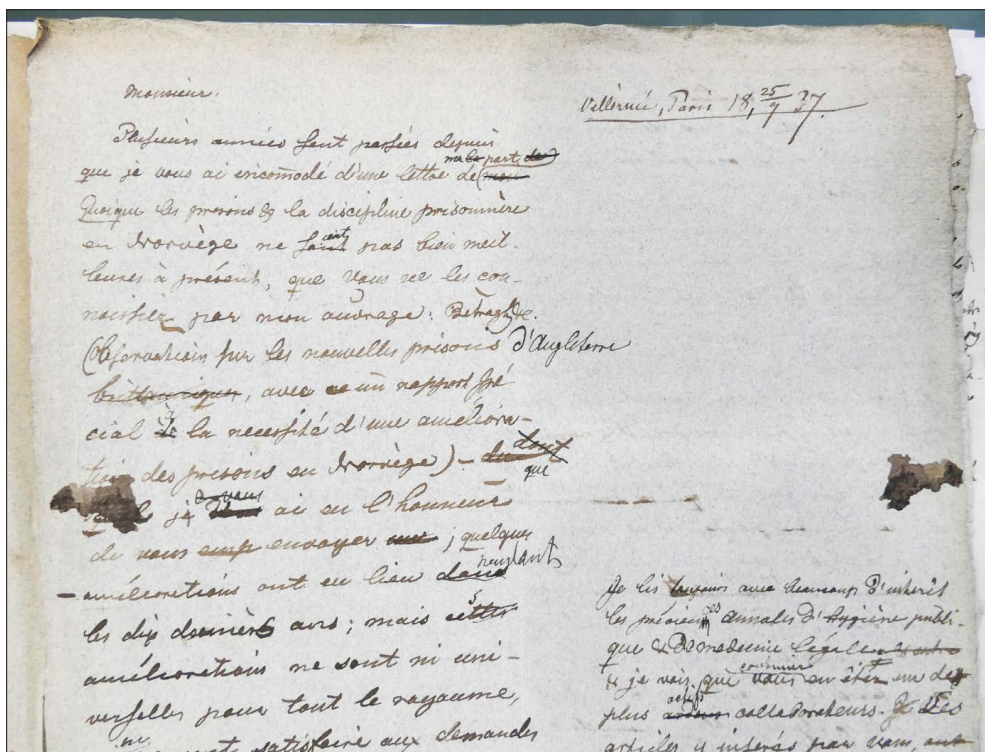 Monsieur.
Villermé, Paris 18, 25/9 37.
Plusieurs années sont passées depuis
que je vous ai incomodé d'une lettre de ma la part de mon
Quoique les prisons & la discipline prisonnière
en Norvège ne sont pas bien meil-
leures à présent, que vous ne les con-
noissiez par mon ouvrage: Betragtn. &c.
(Observations sur les nouvelles prisons d'Angleterre
brittanique, avec un rapport spé
cial à la necessité d'une améliora-
tion des prisons en Norvège) – dont
que
je vous ai eu l'honneur
de vous envoyer; quelques
pendant
– améliorations ont eu lieu dans
les dix dernières ans; mais cettes
améliorations ne sont ni uni-
verselles pour tout le royaume,
ni
satisfaire aux demandes
Je lis toujours avec beaucoup d'intérêt
les précieuses Annales d'Hygiène publi-
que & De medecine légale
continuez
& je vois, que vous en êtes un des
actifs
plus collaborateurs. Les
articles y insérés par vous,